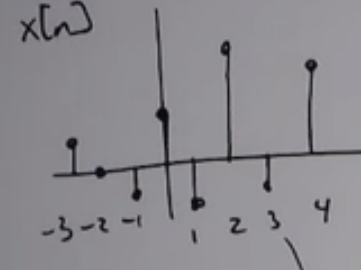 x[n]
-3 -2 -1 1 2 3 4